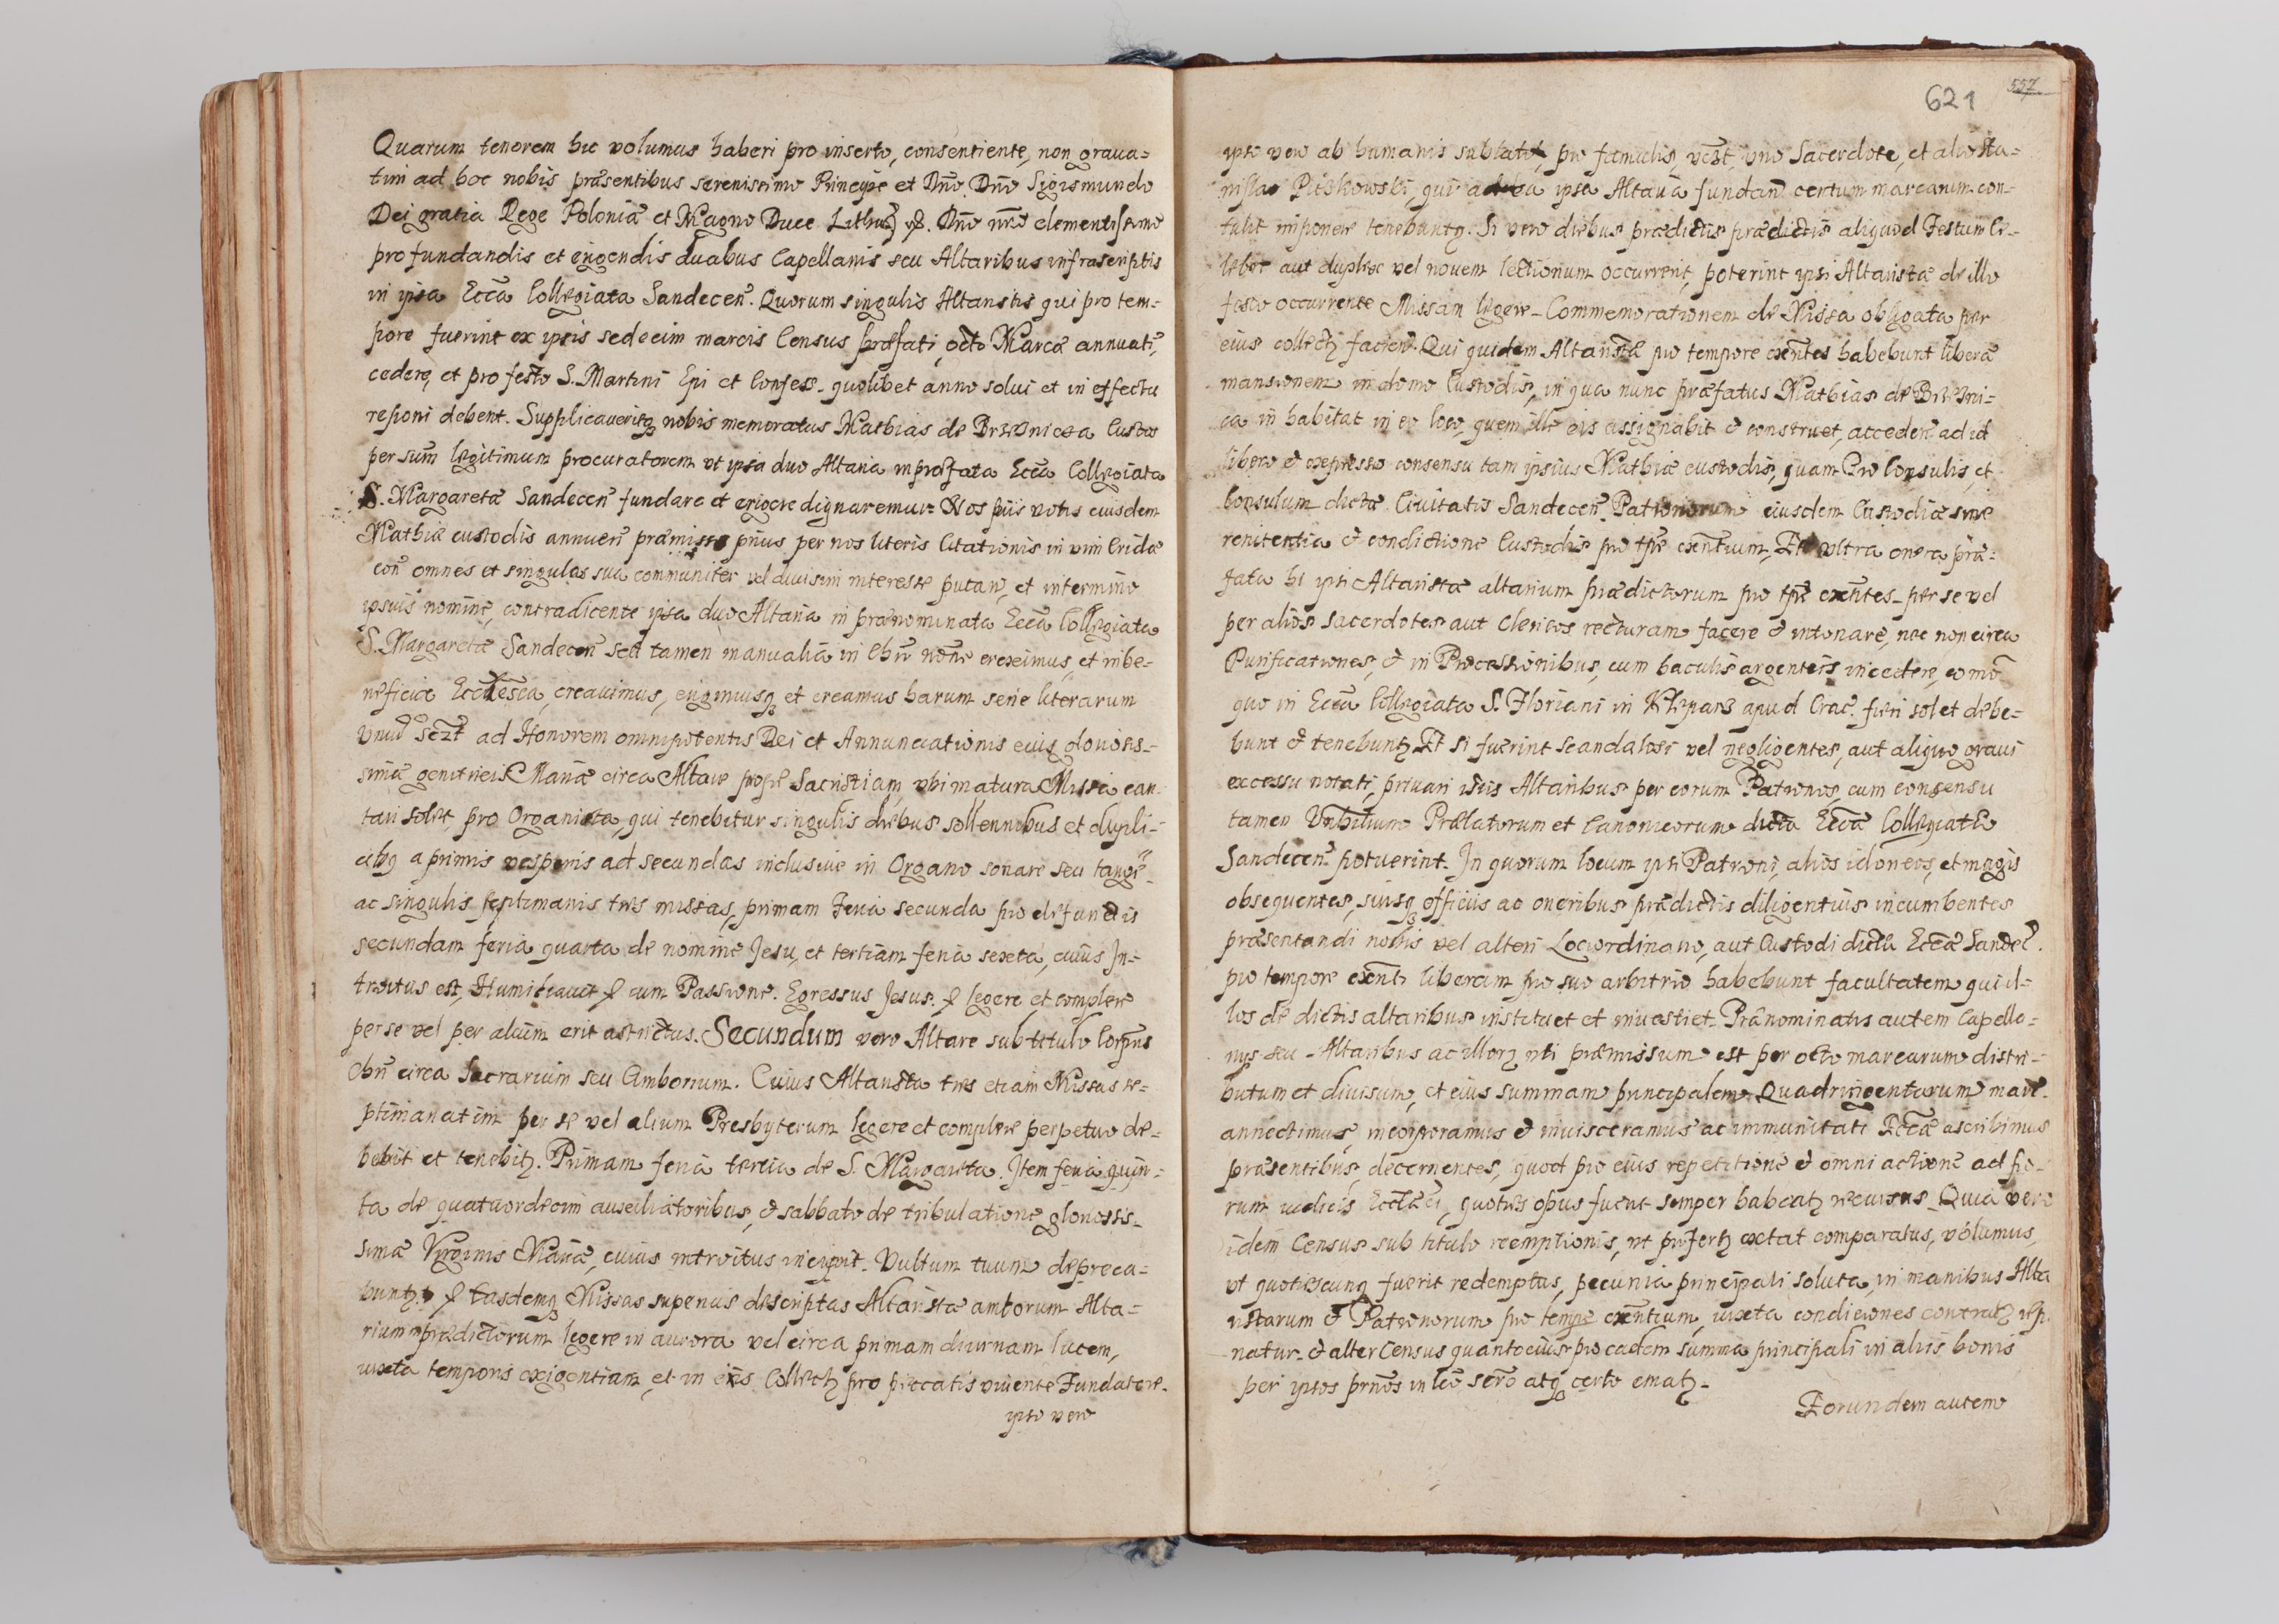 Quarum tenorem hic volumus haberi pro inserto, consentiente, non grava=
tim ad hoc nobis præsentibus serenissimo Principe et Dño Dño Sigismundo
Dei gratia Rege Poloniæ et Magno Duce Lithuæ &. Dño nrō clementissimo
pro fundandis et erigendis duabus Capellanis seu Altaribus infrascriptis
in ipsa Eccā Collegiata Sandecen. Quorum singulis Altaristis qui pro tem=
pore fuerint ex ipsis sedecim marcis Census præfati, octo Marcæ annuati,
cedere, et pro festo S. Martini Epi et Confess. quolibet anno solui et in effectu
reponi debent. Supplicaueritq nobis memoratus Mathias de Brzeznicza Custos
per suum legitimum procuratorem vt ipsa duo Altaria in præfata Eccā Collegiata
S. Margaretæ Sandecen fundare et erigere dignaremur Nos piis votis eiusdem
Mathiæ custodis annuen præmissis prius per nos literis Citationis in vim Cridæ
con omnes et singulos sua communiter vel diuisim interesse putan, et in termino
ipsius nomine, contradicente ipsa duo Altaria in prænominata Eccā Collegiata
S. Margaretæ Sandecen seu tamen manualia in Chri nōne ereximus, et in be=
neficia Ecclesca, creauimus, erigimusq et creamus harum serie literarum
Vnū sczt ad Honorem omnipotentis Dei et Annunciationis eius glorios=
simæ genitricis Mariæ circa Altare prope Sacristiam vbi matura Missa can=
tari solet, pro Organista, qui tenebitur singulis diebus sollennibus et dupli=
cibq a primis vesperis ad secundas inclusiue in Organo sonare seu tangē
ac singulis septimanis tres missas, primam Feria secunda pro defunctis
secundam feria quarta de nomine Jesu, et tertiam feria sexta, cuius In=
troitus est, Humiliauit & cum Passione. Egressus Jesus. & legere et complere
per se vel per alium erit astrictus. Secundum vero Altare sub titulo Corporis
Chri circa Sacrarium seu Cimborium. Cuius Altarista tres etiam Missas se=
ptimanatim per se vel alium Presbyterum legere et complere perpetuo de=
bebit et tenebitz. Primam feria tertia de S. Margareta. Item feria quin=
ta de quatuordecim auxiliatoribus, & sabbato de tribulatione gloriosis=
simæ Virginis Mariæ, cuius introitus incipit. Vultum tuum depreca=
buntz. & Easdemq Missas superius descriptas Altaristæ amborum Alta=
rium prædictorum legere in aurora vel circa primam diurnam lucem,
iuxta temporis exigentiam, et in eis Collectz pro peccatis viuente Fundatore.
ipso vero
621
557
ipso vero ab humanis sublato, pro famulis, vczt, vno Sacerdote, et alio Sta=
nislao Piskowski, qui ad ipsa Altaria fundan certum marcarum con=
tulit imponere tenebuntz. Si vero diebus prædictis prædictis aliquod Festum Ce=
lebre aut duplex vel nouem lectionum occurrerit, poterint ipsi Altaristæ de illo
festo occurrente Missam legere. Commemorationem de Missa obligata per
eius collectz facien. Qui quidem Altaristæ pro tempore exntes habebunt liberā
mansionem in domo Custodis, in qua nunc præfatus Mathias de Brzezni=
ca inhabitat in eo loco, quem ille eis assignabit & construet, acceden ad id
libero & expresso consensu tam ipsius Mathiæ custodis, quam Pro Consulis, et
Consulum dictæ Ciuitatis Sandecen. Patronorum eiusdem Custodiæ sine
renitentia & condictione Custodis pro tpre exntium. Et vltra onera præ=
fata hi ipsi Altaristæ altarium prædictorum pro tpre exntes. per se vel
per alios sacerdotes aut clericos recturam facere & intonare, nec non circa
Purificationes, & in Processionibus, cum baculis argenteis incedere, eo mō
quo in Eccā Collegiata S. Floriani in Kleparz apud Crac. fieri solet debe=
bunt & tenebuntz. Et si fuerint scandalosi vel negligentes, aut aliquo graui
excessu notati, priuari istis Altaribus per eorum Patronos, cum consensu
tamen Vnbilium Prælatorum et Canonicorum dictæ Eccæ Collegiatæ
Sandecen. potuerint. In quorum locum ipsi Patroni, alios idoneos, et magis
obsequentes, suisq officiis ac oneribus prædictis diligentius incumbentes
præsentandi nobis vel alteri Lociordinario, aut Custodi dictæ Eccæ Sandec.
pro tempore exnti liberam pro suo arbitrio habebunt facultatem qui il=
los de dictis altaribus instituet et inuestiet. Prænominatis autem Capella=
nijs seu Altaribus ac illorz vti præmissum est per octo marcarum distri=
butum et diuisum, et eius summam principalem Quadringentorum marc.
annectimus, incorporamus & inuisceramus ac immunitati Eccæ ascribimus
præsentibus, decernentes, quod pro eius repetitione & omni actione ad fo=
rum iudicis Ecclæci, quoties opus fuerit semper habeatz recursus. Quia vero
idem Census sub titulo reemptionis, vt præfertz extat comparatus, volumus,
vt quotiescunq fuerit redemptus, pecunia principali soluta, in manibus Alta
ristarum & Patronorum pro tempre exntium, iuxta condiciones contractz rep.
natur. & alter Census quantocius pro eadem summa principali in aliis bonis
per ipsos prnos in leō serō atq certo ematz.
Eorundem autem